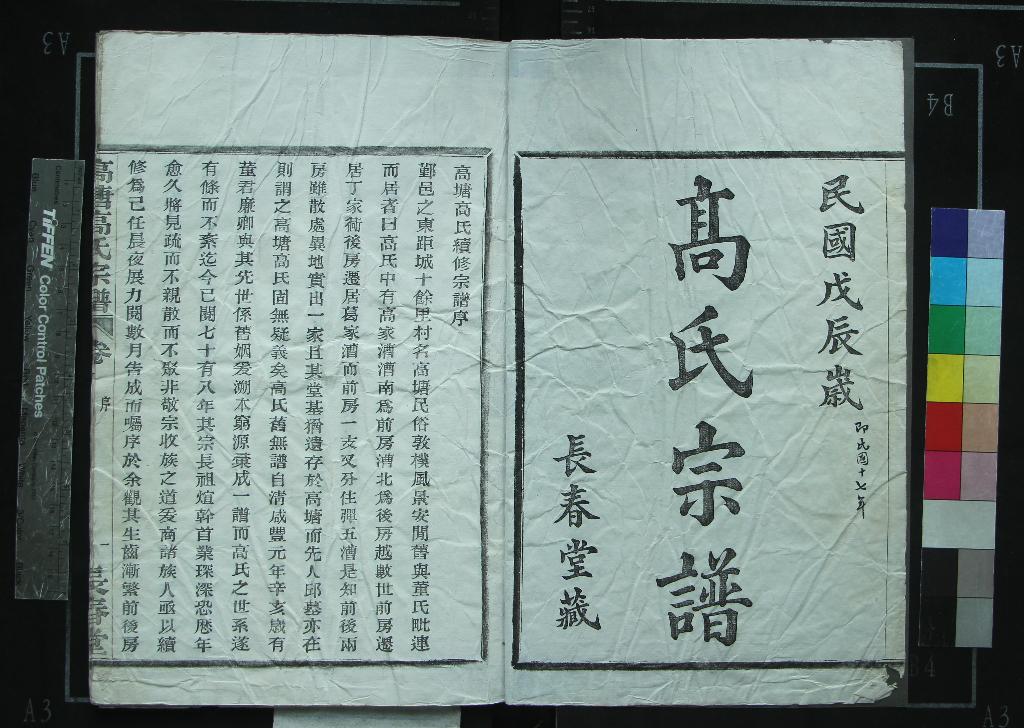 民國戊辰歲
即民國十七年
髙氏宗譜
長春堂藏
高塘高氏續修宗譜序
鄞邑之東距城十餘里村名高塘民俗敦樸風景安閒舊與董氏毗連
而居者曰高氏中有高家漕漕南爲前房漕北爲後房越數世前房遷
居丁家衕後房遷居葛家漕而前房一支又分住彈五漕是知前後兩
房雖散處異地實出一家且其堂基猶遺存於高塘而先人邱墓亦在
則謂之高塘高氏固無疑義矣高氏舊無譜自清咸豐元年辛亥歲有
董君廉卿與其先世係舊姻爰溯本窮源彙成一譜而高氏之世系遂
有條而不紊迄今已閱七十有八年其宗長祖煊幹首業琛深恐歷年
愈久將見疏而不親散而不聚非敬宗收族之道爰商諸族人亟以續
修爲己任晨夜展力閱數月告成而囑序於余觀其生齒漸繁前後房
高塘高氏宗譜
卷
序
一
長春堂
TIFFEN Color Control Patches
A3
A3
B4
B4
A3
A3